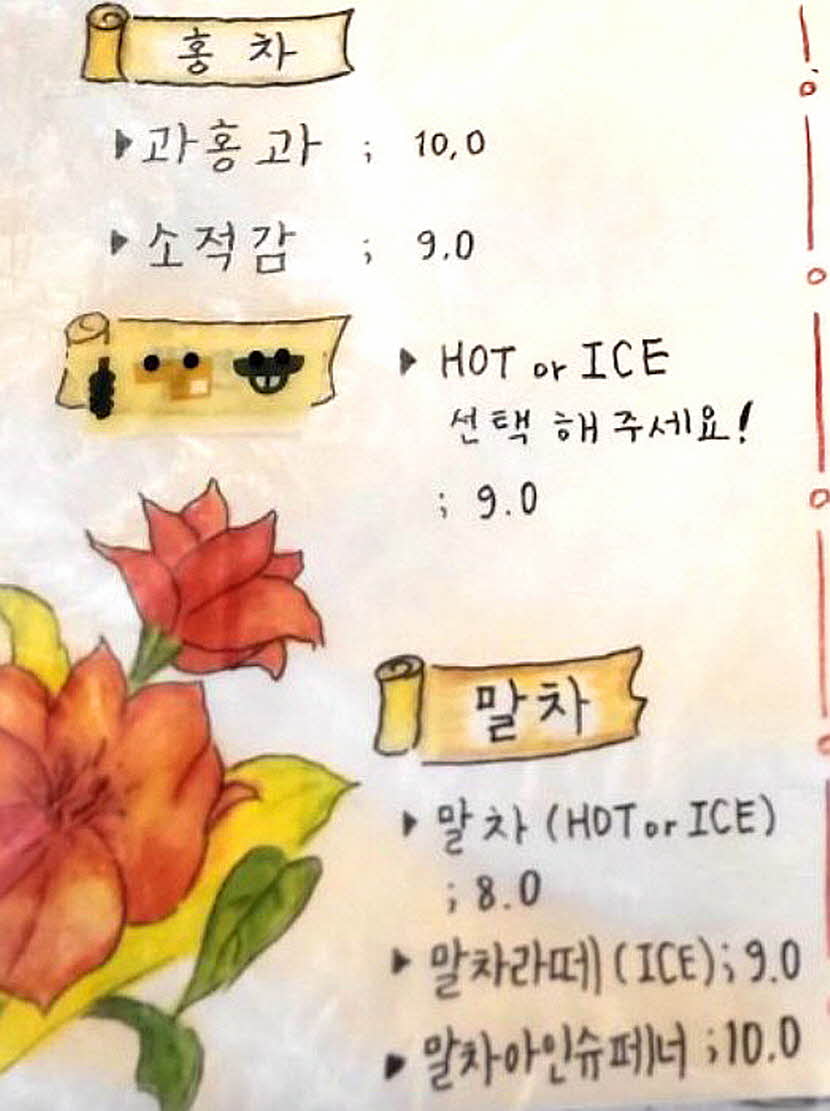 홍차
▶과홍과 ; 10,0
▶소적감 ; 9.0
▶ HOT or ICE
선택 해주세요!
; 9.0
말차
▶ 말차 (HOT or ICE)
; 8.0
▶ 말차라떼 (ICE) ; 9.0
▶ 말차아인슈페너 ; 10.0